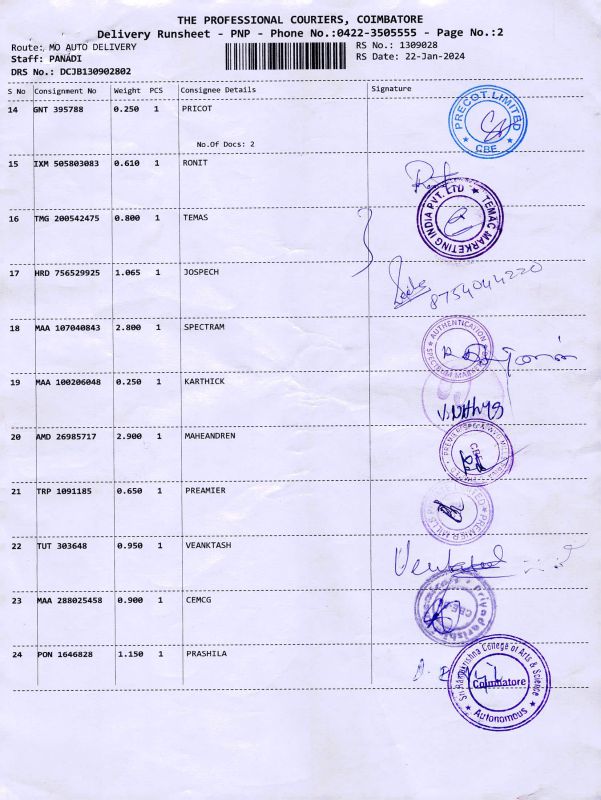 THE PROFESSIONAL COURIERS, COIMBATORE
Delivery Runsheet - PNP - Phone No.:0422-3505555 - Page No.:2
Route: MO AUTO DELIVERY RS No.: 1309028
Staff: PANADI RS Date: 22-Jan-2024
DRS No.: DCJB130902802
S No Consignment No Weight PCS Consignee Details Signature
14 GNT 395788 0.250 1 PRICOT
PRECOT LIMITED
CBE
No.Of Docs: 2
15 IXM 505803083 0.610 1 RONIT
16 TMG 200542475 0.800 1 TEMAS
TEMAC MARKETING INDIA PVT. LTD
17 HRD 756529925 1.065 1 JOSPECH
8754044220
18 MAA 107040843 2.800 1 SPECTRAM
AUTHENTICATION
19 MAA 100206048 0.250 1 KARTHICK
20 AMD 26985717 2.900 1 MAHEANDREN
CBE
21 TRP 1091185 0.650 1 PREAMIER
PREMIER MILLS
22 TUT 303648 0.950 1 VEANKTASH
23 MAA 288025458 0.900 1 CEMCG
CBE
24 PON 1646828 1.150 1 PRASHILA
Sri Ramakrishna College of Arts & Science
Coimbatore
Autonomous